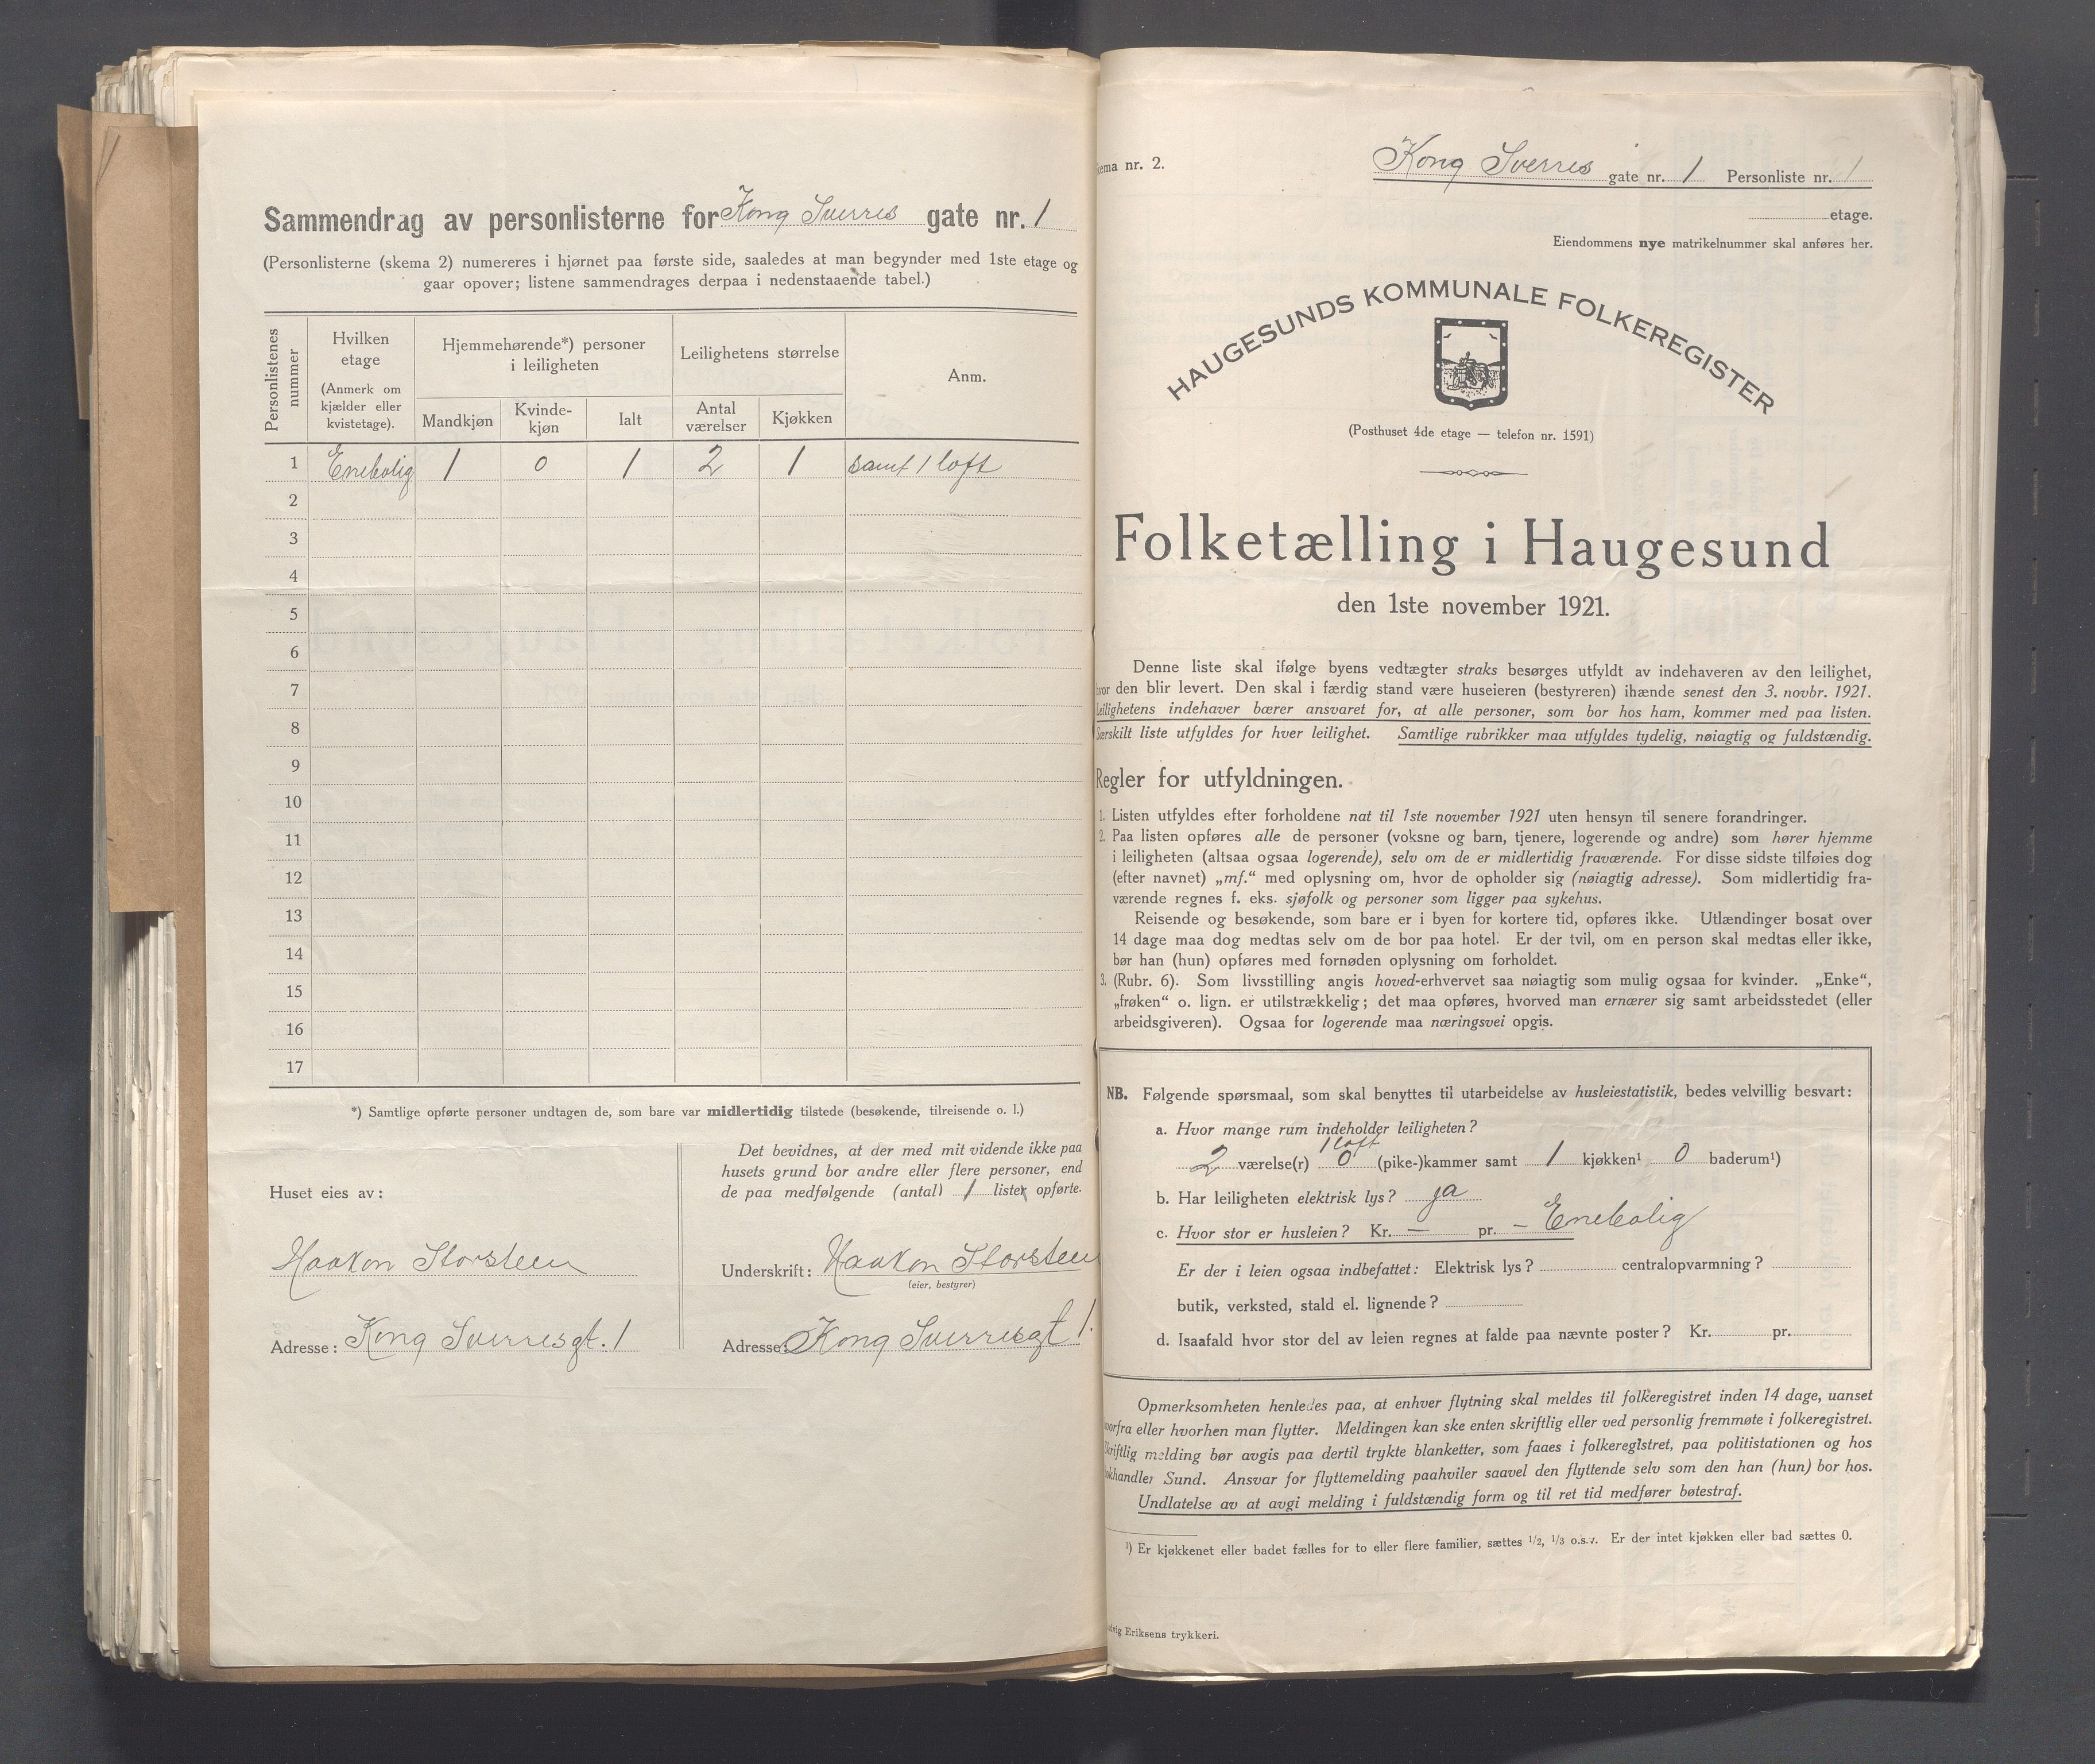 Sammendrag av personlisterne for Kong Sverres gate nr. 1
(Personlisterne (skema 2) numereres i hjørnet paa første side, saaledes at man begynder med 1ste etage og
gaar opover; listene sammendrages derpaa i nedenstaaende tabel.)
Personlistenes nummer
Hvilken etage (Anmerk om kjælder eller kvistetage).
Hjemmehørende*) personer i leiligheten
Mandkjøn Kvinde-kjøn Ialt
Leilighetens størrelse
Antal værelser Kjøkken
Anm.
1 Enebolig 1 0 1 2 1 samt 1 loft
2
3
4
5
6
7
8
9
10
11
12
13
14
15
16
17
*) Samtlige opførte personer undtagen de, som bare var midlertidig tilstede (besøkende, tilreisende o. l.)
Huset eies av:
Haakon Storsteen
Adresse: Kong Sverresgt. 1
Det bevidnes, at der med mit vidende ikke paa
husets grund bor andre eller flere personer, end
de paa medfølgende (antal) 1 lister opførte.
Underskrift: Haakon Storsteen
(eier, bestyrer)
Adresse: Kong Sverresgt 1.
ema nr. 2.
Kong Sverres gate nr. 1 Personliste nr. 1
etage.
Eiendommens nye matrikelnummer skal anføres her.
HAUGESUNDS KOMMUNALE FOLKEREGISTER
(Posthuset 4de etage — telefon nr. 1591)
Folketælling i Haugesund
den 1ste november 1921.
Denne liste skal ifølge byens vedtægter straks besørges utfyldt av indehaveren av den leilighet,
hvor den blir levert. Den skal i færdig stand være huseieren (bestyreren) ihænde senest den 3. novbr. 1921.
Leilighetens indehaver bærer ansvaret for, at alle personer, som bor hos ham, kommer med paa listen.
Særskilt liste utfyldes for hver leilighet. Samtlige rubrikker maa utfyldes tydelig, nøiagtig og fuldstændig.
Regler for utfyldningen.
1. Listen utfyldes efter forholdene nat til 1ste november 1921 uten hensyn til senere forandringer.
2. Paa listen opføres alle de personer (voksne og barn, tjenere, logerende og andre) som hører hjemme
i leiligheten (altsaa ogsaa logerende), selv om de er midlertidig fraværende. For disse sidste tilføies dog
(efter navnet) „mf.“ med oplysning om, hvor de opholder sig (nøiagtig adresse). Som midlertidig fra-
værende regnes f. eks. sjøfolk og personer som ligger paa sykehus.
Reisende og besøkende, som bare er i byen for kortere tid, opføres ikke. Utlændinger bosat over
14 dage maa dog medtas selv om de bor paa hotel. Er der tvil, om en person skal medtas eller ikke,
bør han (hun) opføres med fornøden oplysning om forholdet.
3. (Rubr. 6). Som livsstilling angis hoved-erhvervet saa nøiagtig som mulig ogsaa for kvinder. „Enke“,
„frøken“ o. lign. er utilstrækkelig; det maa opføres, hvorved man ernærer sig samt arbeidsstedet (eller
arbeidsgiveren). Ogsaa for logerende maa næringsvei opgis.
NB. Følgende spørsmaal, som skal benyttes til utarbeidelse av husleiestatistik, bedes velvillig besvart:
a. Hvor mange rum indeholder leiligheten?
1 loft
2 værelse(r) 0 (pike-)kammer samt 1 kjøkken¹ 0 baderum¹)
b. Har leiligheten elektrisk lys? ja
c. Hvor stor er husleien? Kr. — pr. — Enebolig
Er der i leien ogsaa indbefattet: Elektrisk lys? centralopvarmning?
butik, verksted, stald el. lignende?
d. Isaafald hvor stor del av leien regnes at falde paa nævnte poster? Kr. pr.
Opmerksomheten henledes paa, at enhver flytning skal meldes til folkeregistret inden 14 dage, uanset
vorfra eller hvorhen man flytter. Meldingen kan ske enten skriftlig eller ved personlig fremmøte i folkeregistret.
Skriftlig melding bør avgis paa dertil trykte blanketter, som faaes i folkeregistret, paa politistationen og hos
okhandler Sund. Ansvar for flyttemelding paahviler saavel den flyttende selv som den han (hun) bor hos.
Undlatelse av at avgi melding i fuldstændig form og til ret tid medfører bøtestraf.
¹) Er kjøkkenet eller badet fælles for to eller flere familier, sættes 1/2, 1/3 o.s.v. Er der intet kjøkken eller bad sættes 0.
udvig Eriksens trykkeri.